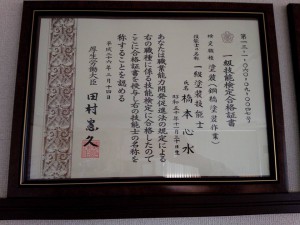 一級技能検定合格証書
検定職種 塗装(鋼橋塗装作業)
技能士の名称 一級塗装技能士
氏名 橋本心水
あなたは職業能力開発促進法の規定による
右の職種に係る技能検定に合格したので
ここに合格証書を授与し右の技能士の名称を
称することを認める
平成二十六年三月十四日
厚生労働大臣 田村憲久